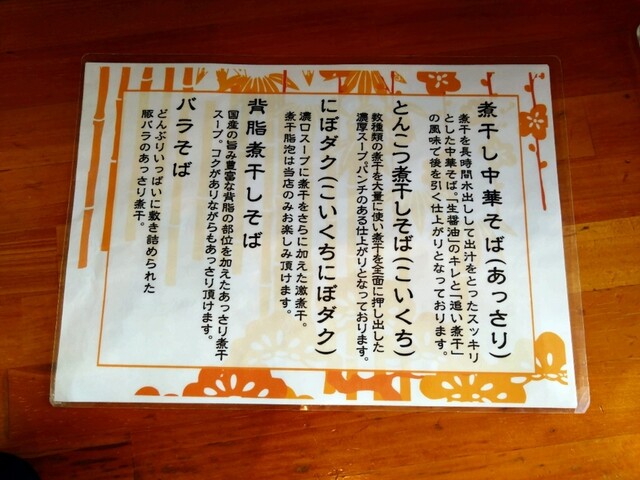 煮干し中華そば(あっさり)
煮干を長時間水出しして出汁をとったスッキリ
とした中華そば。「生醤油」のキレと「追い煮干」
の風味で後を引く仕上がりとなっております。
とんこつ煮干しそば(こいくち)
数種類の煮干を大量に使い煮干を全面に押し出した
濃厚スープ。パンチのある仕上がりとなっております。
にぼダク(こいくちにぼダク)
濃口スープに煮干をさらに加えた激煮干。
煮干脂泡は当店のみお楽しみ頂けます。
背脂煮干しそば
国産の旨み豊富な背脂の部位を加えたあっさり煮干
スープ。コクがありながらもあっさり頂けます。
バラそば
どんぶりいっぱいに敷き詰められた
豚バラのあっさり煮干。